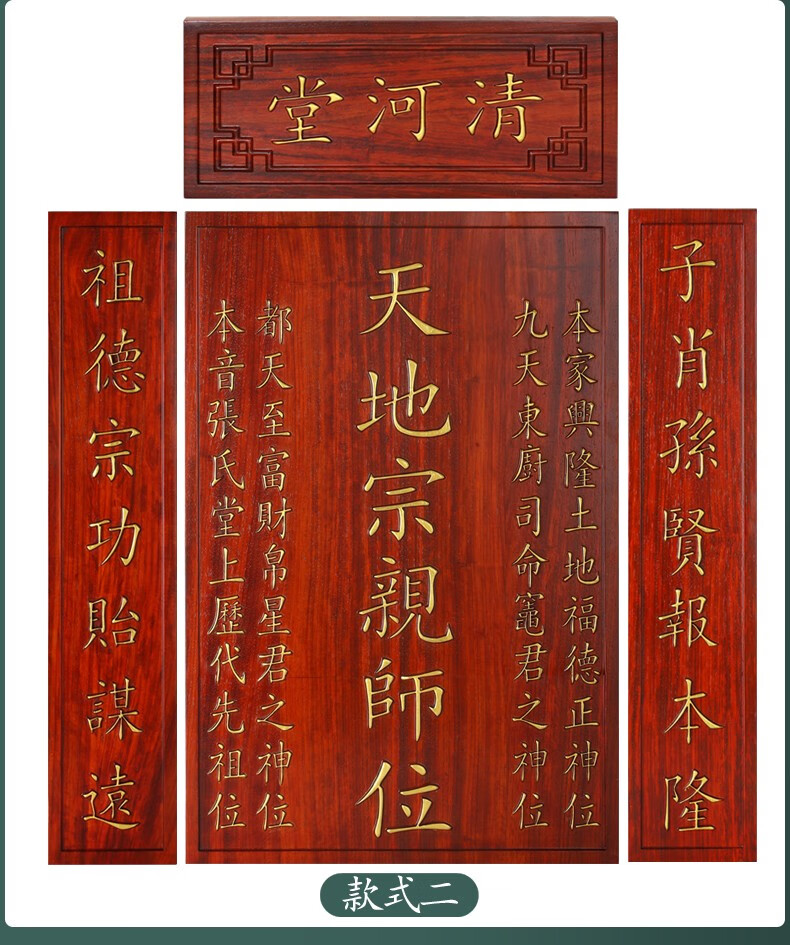 清河堂
子肖孫賢報本隆
本家興隆土地福德正神位
九天東廚司命竈君之神位
天地宗親師位
都天至富財帛星君之神位
本音張氏堂上歷代先祖位
祖德宗功貽謀遠
款式二